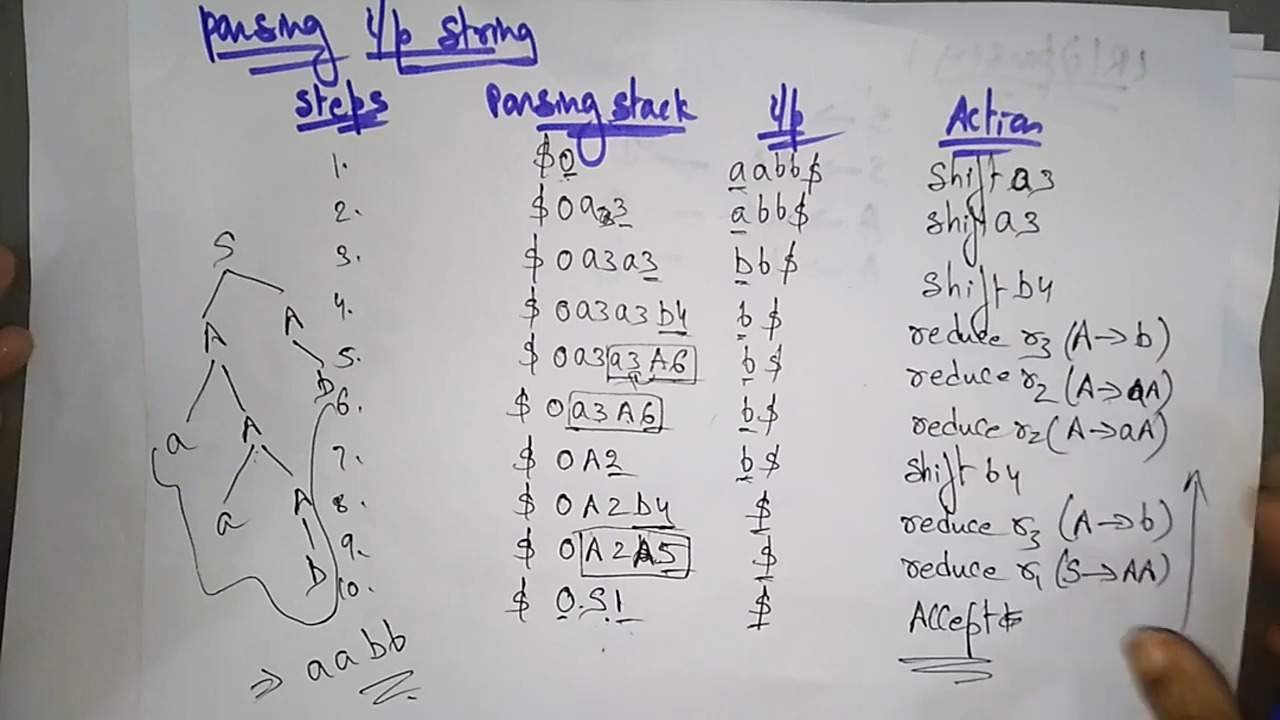 Parsing i/p string
Steps Parsing stack i/p Action
1. $0 aabb$ Shift a3
2. $0a3 abb$ shift a3
3. $0a3a3 bb$ shift b4
4. $0a3a3b4 b$ reduce r3 (A→b)
5. $0a3a3A6 b$ reduce r2 (A→aA)
6. $0a3A6 b$ reduce r2 (A→aA)
7. $0A2 b$ shift b4
8. $0A2b4 $ reduce r3 (A→b)
9. $0A2A5 $ reduce r1 (S→AA)
10. $0S1 $ Accept
S
A A
b
a A
a A
b
⇒ aabb